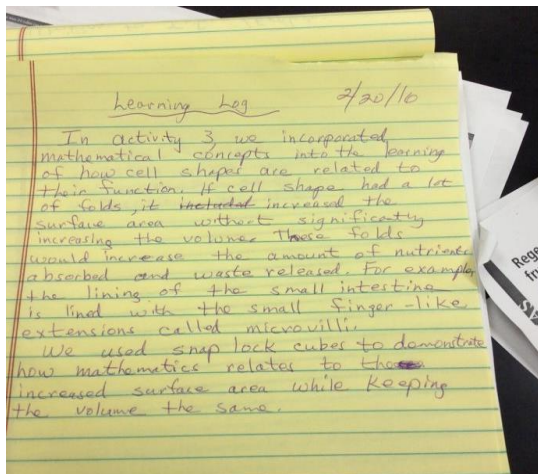 Learning Log 2/20/16
In activity 3, we incorporated
mathematical concepts into the learning
of how cell shapes are related to
their function. If cell shape had a lot
of folds, it included increased the
surface area without significantly
increasing the volume. These folds
would increase the amount of nutrients
absorbed and waste released. For example,
the lining of the small intestine
is lined with the small finger-like
extensions called microvilli.
We used snap lock cubes to demonstrate
how mathematics relates to
increased surface area while keeping
the volume the same.
Rege
fr